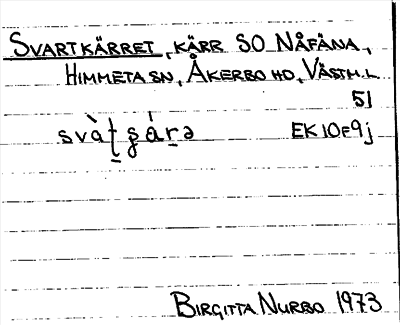 SVARTKÄRRET, KÄRR SO NÅFÄNA,
HIMMETA SN, ÅKERBO HD, VÄSTM. L
51
svàt̠ ʂár̠ə EK 10E9j
BIRGITTA NURBO 1973